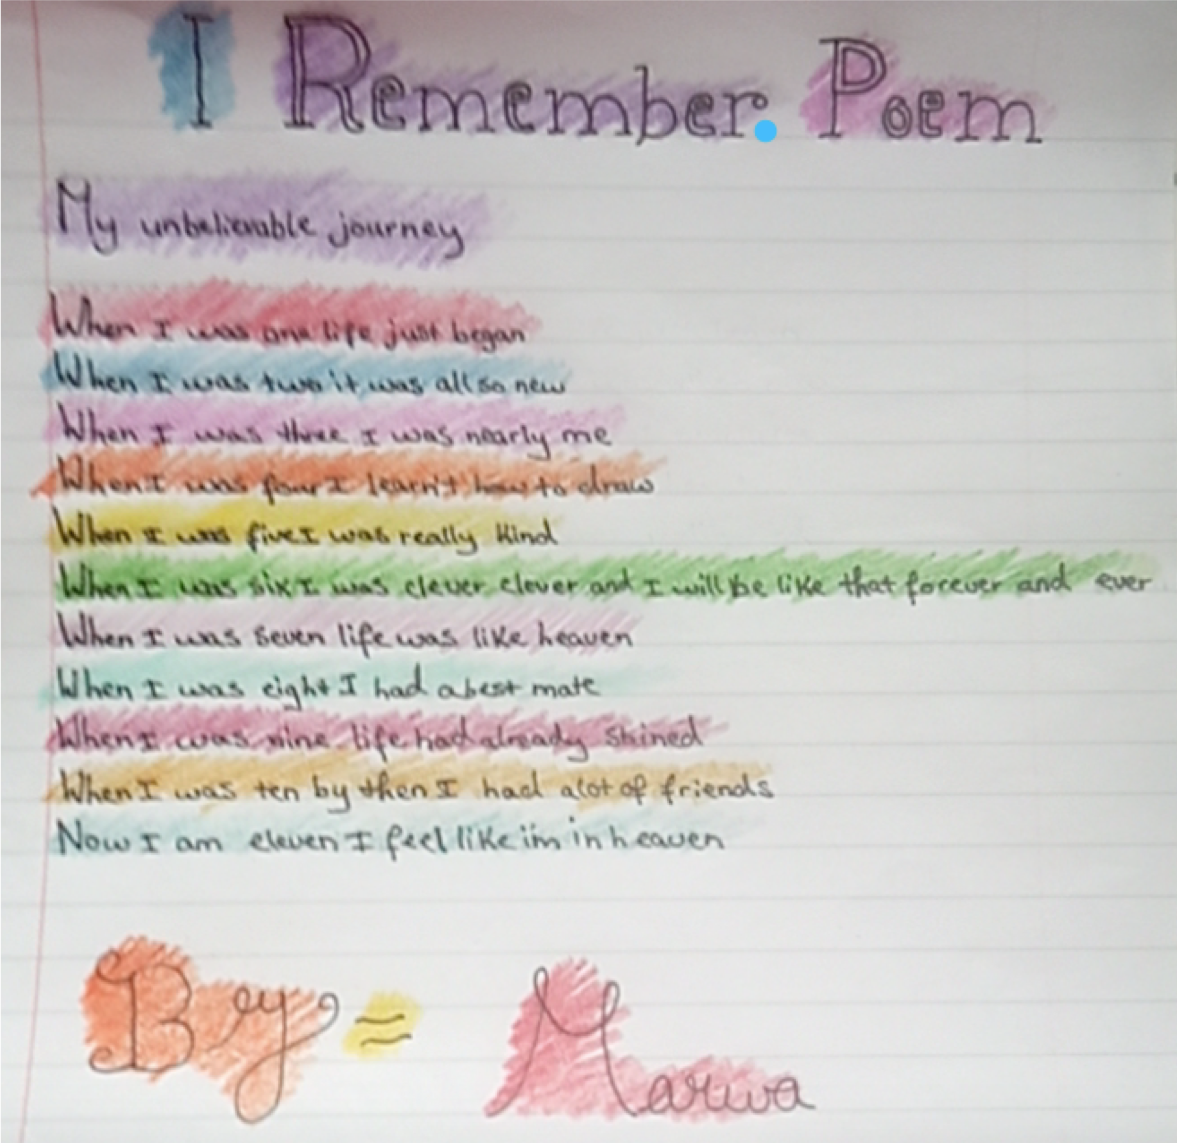 I Remember. Poem
My unbelievable journey
When I was one life just began
When I was two it was all so new
When I was three I was nearly me
When I was four I learn't how to draw
When I was five I was really kind
When I was six I was clever clever and I will be like that forever and ever
When I was seven life was like heaven
When I was eight I had a best mate
When I was nine life had already shined
When I was ten by then I had alot of friends
Now I am eleven I feel like i'm in heaven
By = Marwa